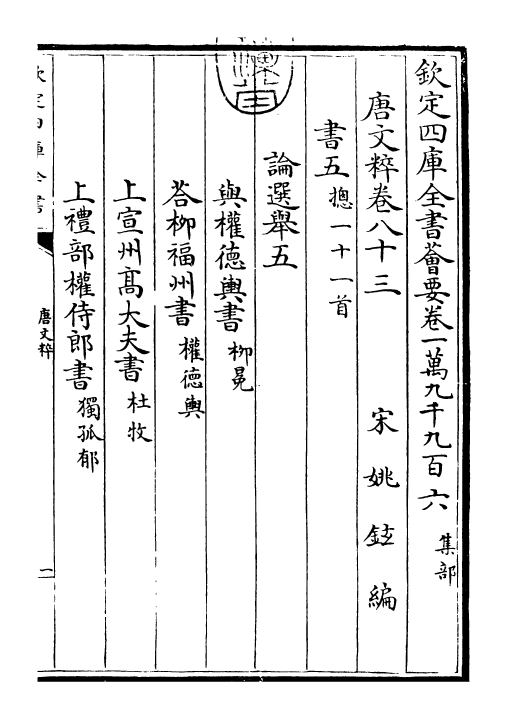 欽定四庫全書薈要卷一萬九千九百六 集部
唐文粹卷八十三 宋 姚鉉 編
書五 摠一十一首
論選舉五
與權德輿書 柳冕
荅柳福州書 權德輿
上宣州髙大夫書 杜牧
上禮部權侍郎書 獨孤郁
欽定四庫全書
唐文粹
一